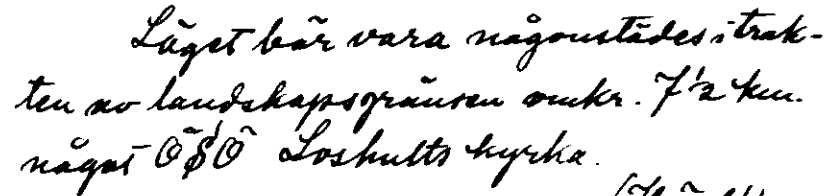 Läget bör vara någonstädes i trak-
ten av landskapsgränsen omkr. 7 1/2 km.
något ÖSÖ Loshults kyrka.